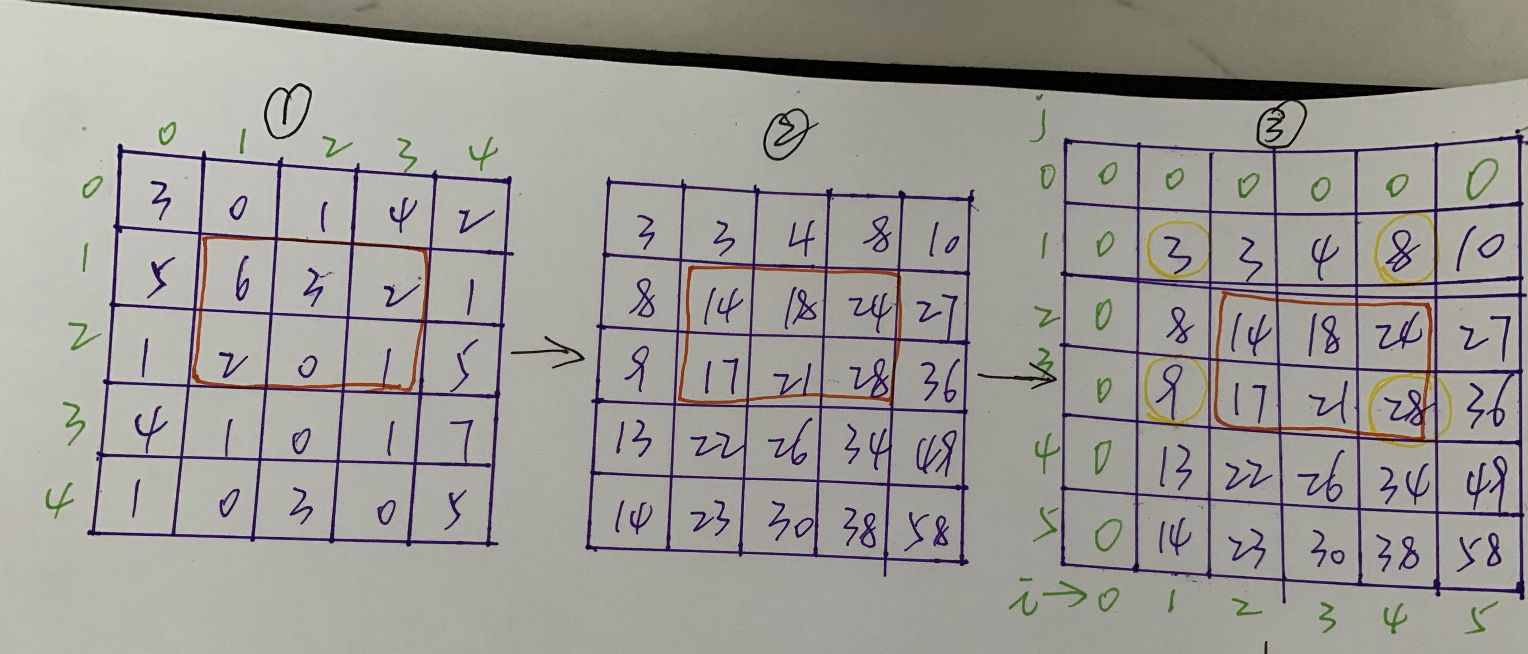 ① ② ③
0 1 2 3 4
0 3 0 1 4 2
1 5 6 3 2 1
2 1 2 0 1 5
3 4 1 0 1 7
4 1 0 3 0 5
3 3 4 8 10
8 14 18 24 27
9 17 21 28 36
13 22 26 34 49
14 23 30 38 58
j
0 0 0 0 0 0 0
1 0 3 3 4 8 10
2 0 8 14 18 24 27
3 0 9 17 21 28 36
4 0 13 22 26 34 49
5 0 14 23 30 38 58
i → 0 1 2 3 4 5